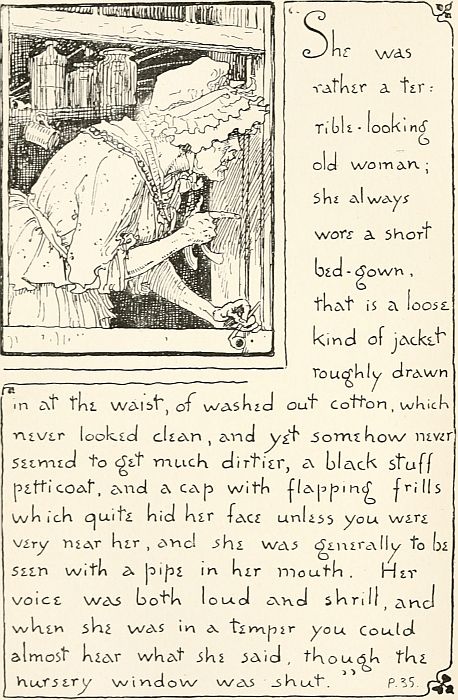 “She was
rather a ter=
rible-looking
old woman;
she always
wore a short
bed-gown,
that is a loose
kind of jacket
roughly drawn
in at the waist, of washed out cotton, which
never looked clean, and yet somehow never
seemed to get much dirtier, a black stuff
petticoat, and a cap with flapping frills
which quite hid her face unless you were
very near her, and she was generally to be
seen with a pipe in her mouth. Her
voice was both loud and shrill, and
when she was in a temper you could
almost hear what she said, though the
nursery window was shut.” P.35.